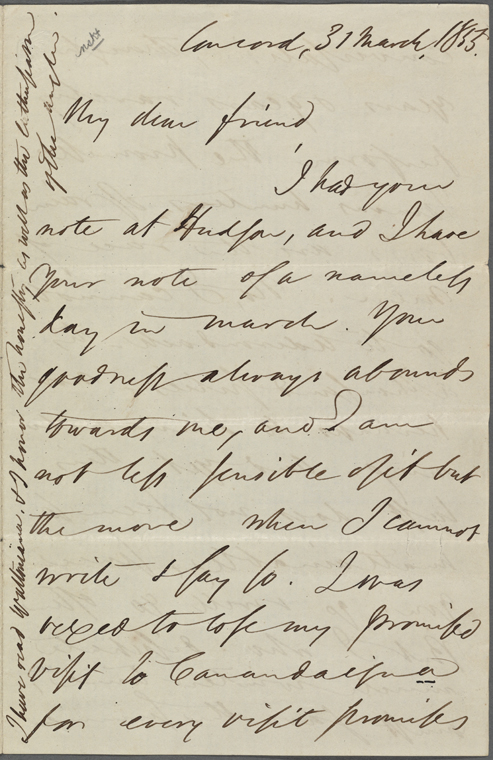 Concord, 31 March, 1855.
My dear friend,
I had your
note at Hudson, and I have
your note of a nameless
day in march. Your
goodness always abounds
towards me, and I am
not less sensible of it but
the more when I cannot
write & say so. I was
vexed to lose my promised
visit to Canandaigua
for every visit promises
I have read Waltoniana, & I honor the honesty as well as the enthusiasm
of the angler.